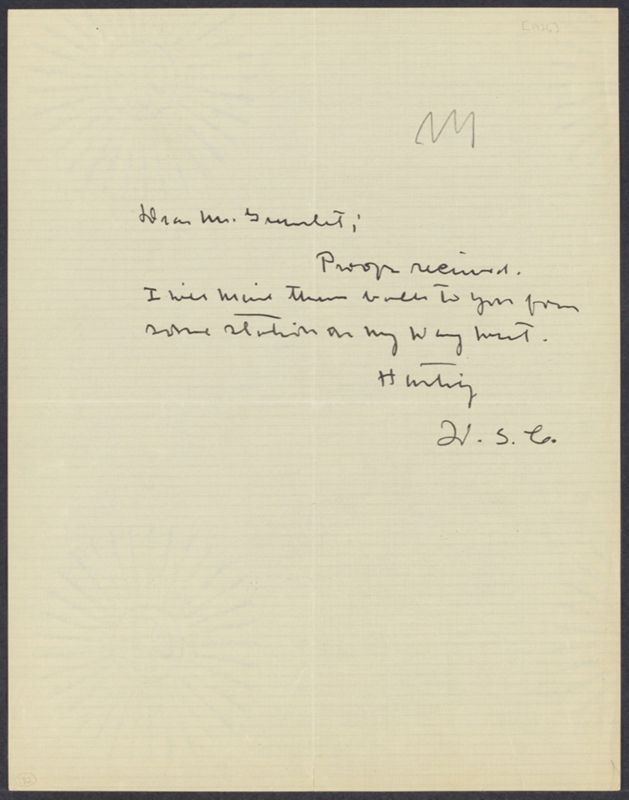 Dear Mr. Greenslet;
Proofs received.
I will mail them back to you from
some station on my way west.
Hastily
W. S. C.